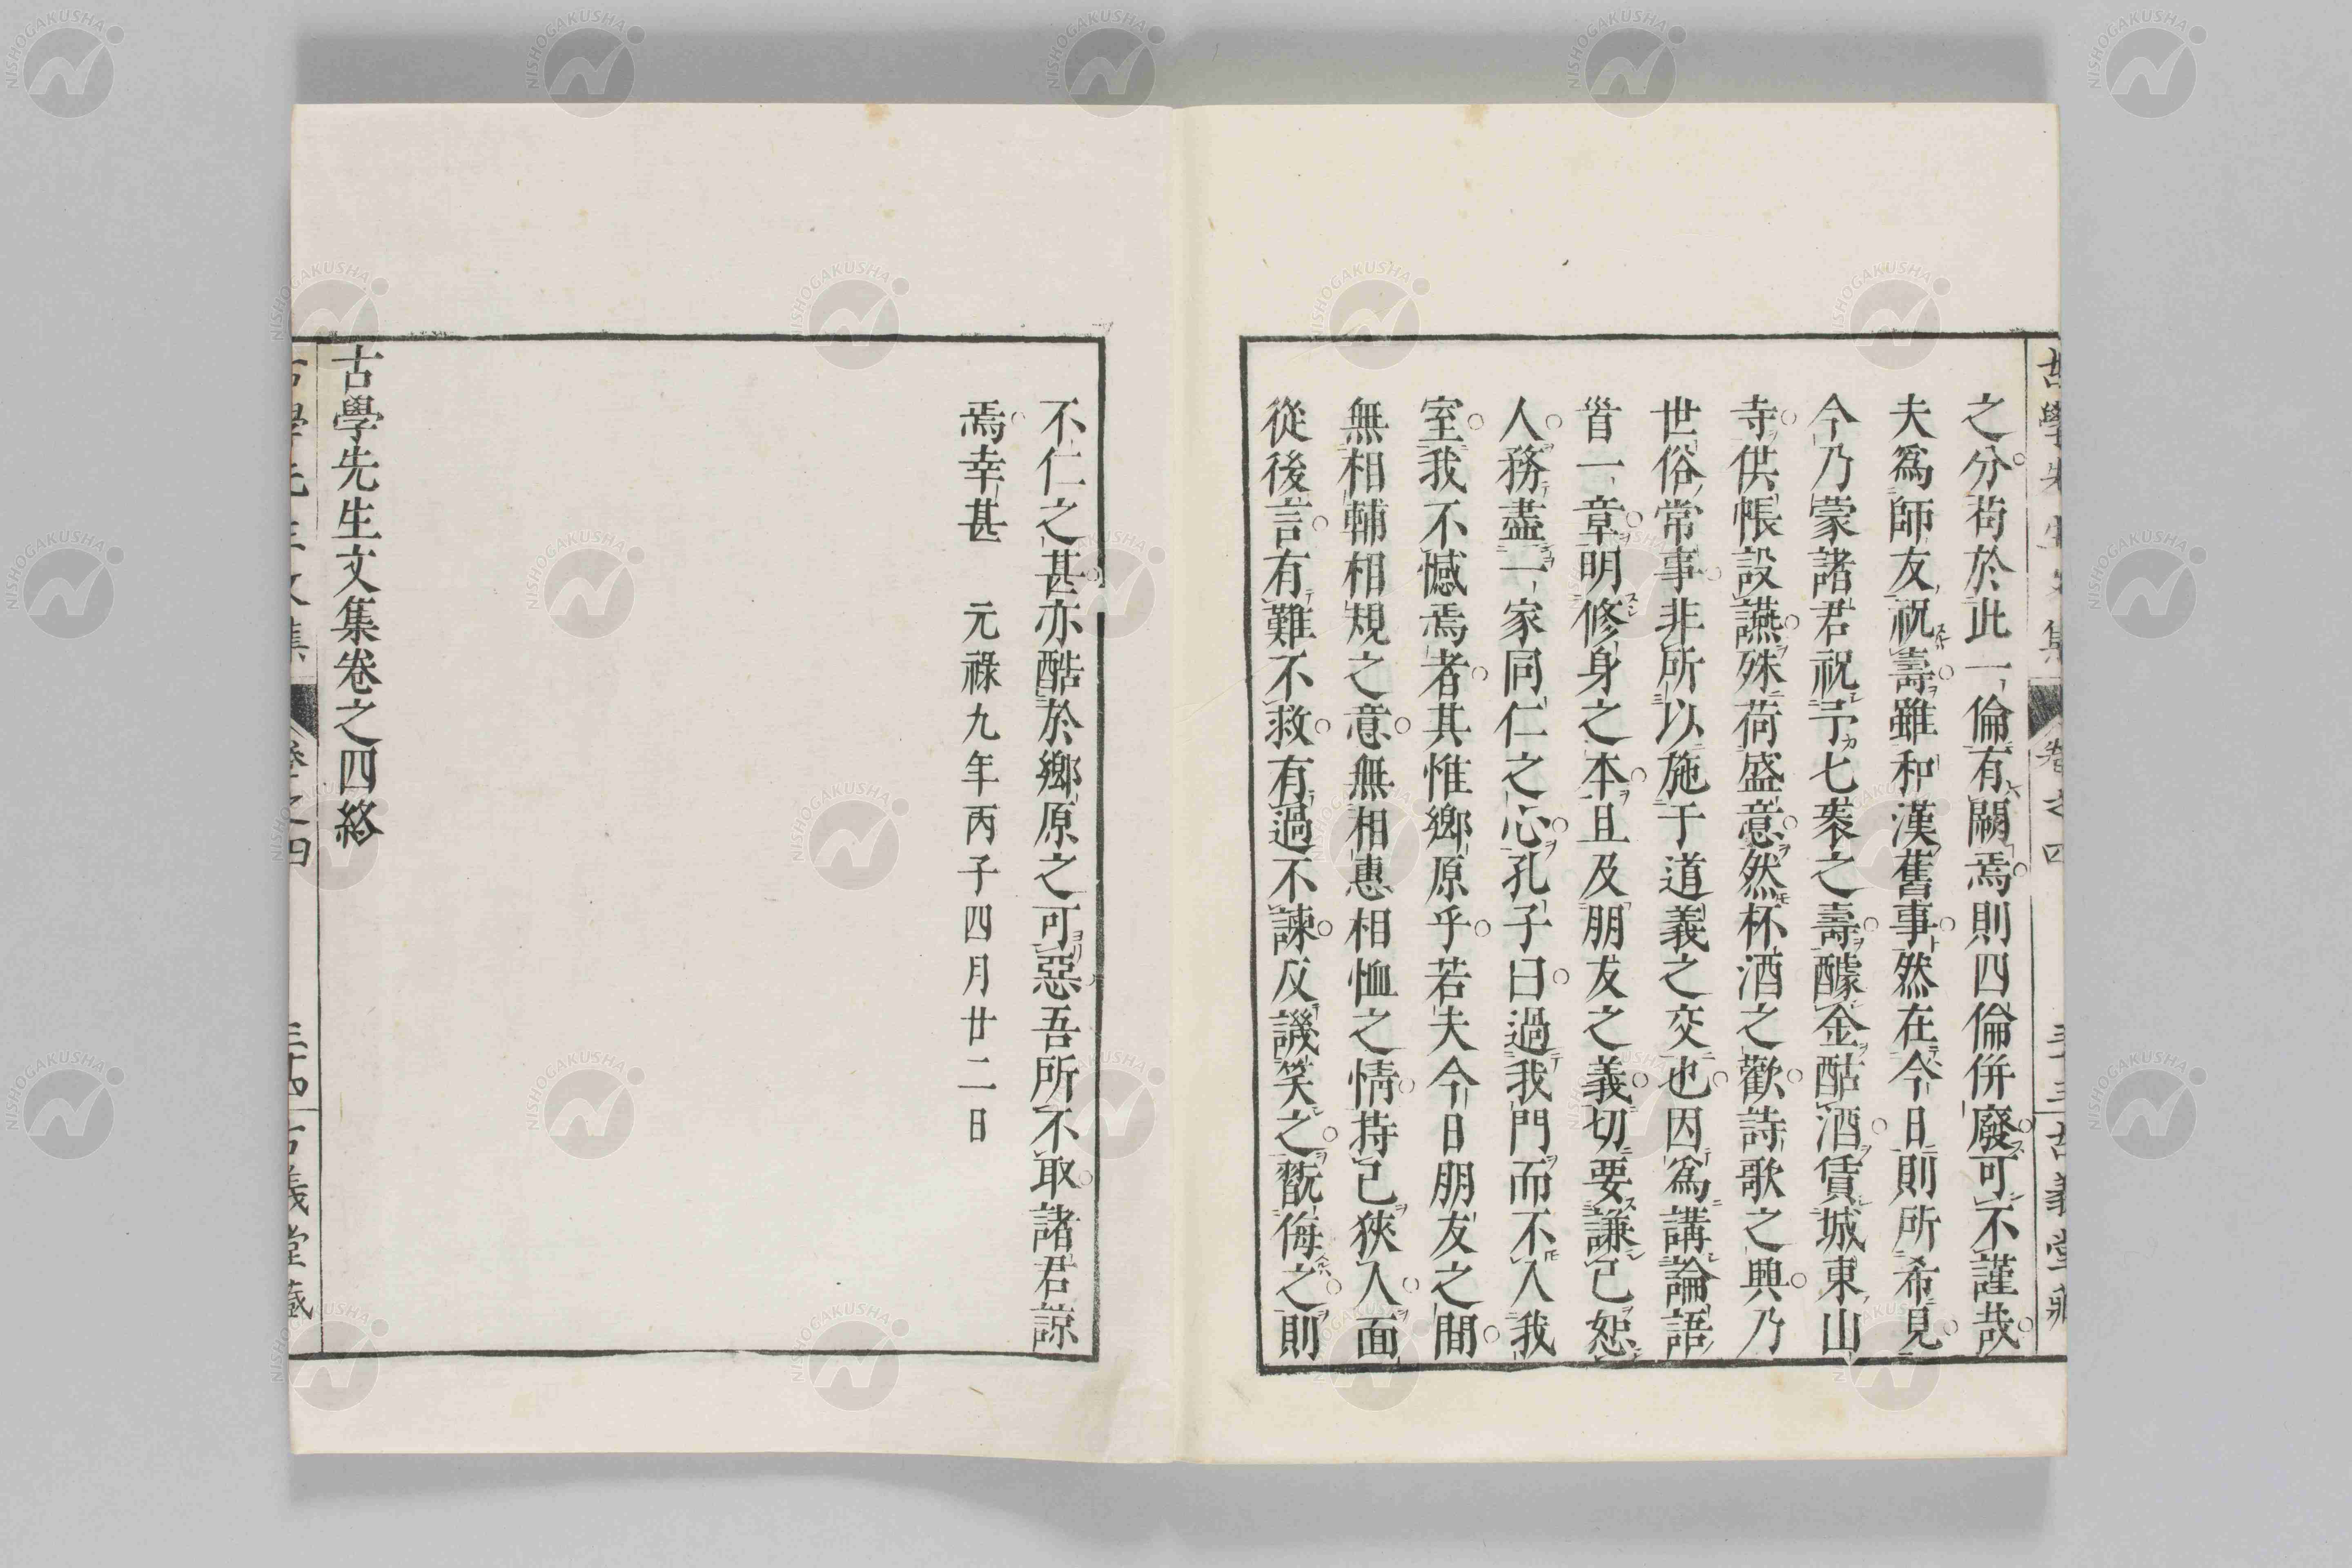 之分苟於此一倫有闕焉則四倫併廢可不謹哉
夫爲師友祝壽雖和漢舊事然在今日則所希見
今乃蒙諸君祝予七袠之壽醵金酤酒賃城東山
寺供帳設讌殊荷盛意然杯酒之歡詩歌之興乃
世俗常事非所以施于道義之交也因爲講論語
首一章明修身之本且及朋友之義切要謙己恕
人務盡一家同仁之心孔子曰過我門而不入我
室我不憾焉者其惟鄉原乎若夫今日朋友之間
無相輔相規之意無相惠相恤之情持己狹入面
從後言有難不救有過不諫反譏笑之翫侮之則
不仁之甚亦酷於鄉原之可惡吾所不取諸君諒
焉幸甚 元祿九年丙子四月廿二日
古學先生文集卷之四終
古學先生文集 卷之四 三十四 古義堂藏
NISHOGAKUSHA